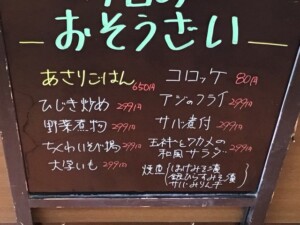 今日の
おそうざい
あさりごはん 650円
ひじき炒め 299円
野菜煮物 299円
ちくわいそべ揚 299円
大学いも 299円
コロッケ 80円
アジのフライ 299円
サバ煮付 299円
玉ネギとワカメの
和風サラダ 299円
焼魚 ほっけみそ漬
銀ひらすみそ漬
サバみりん干